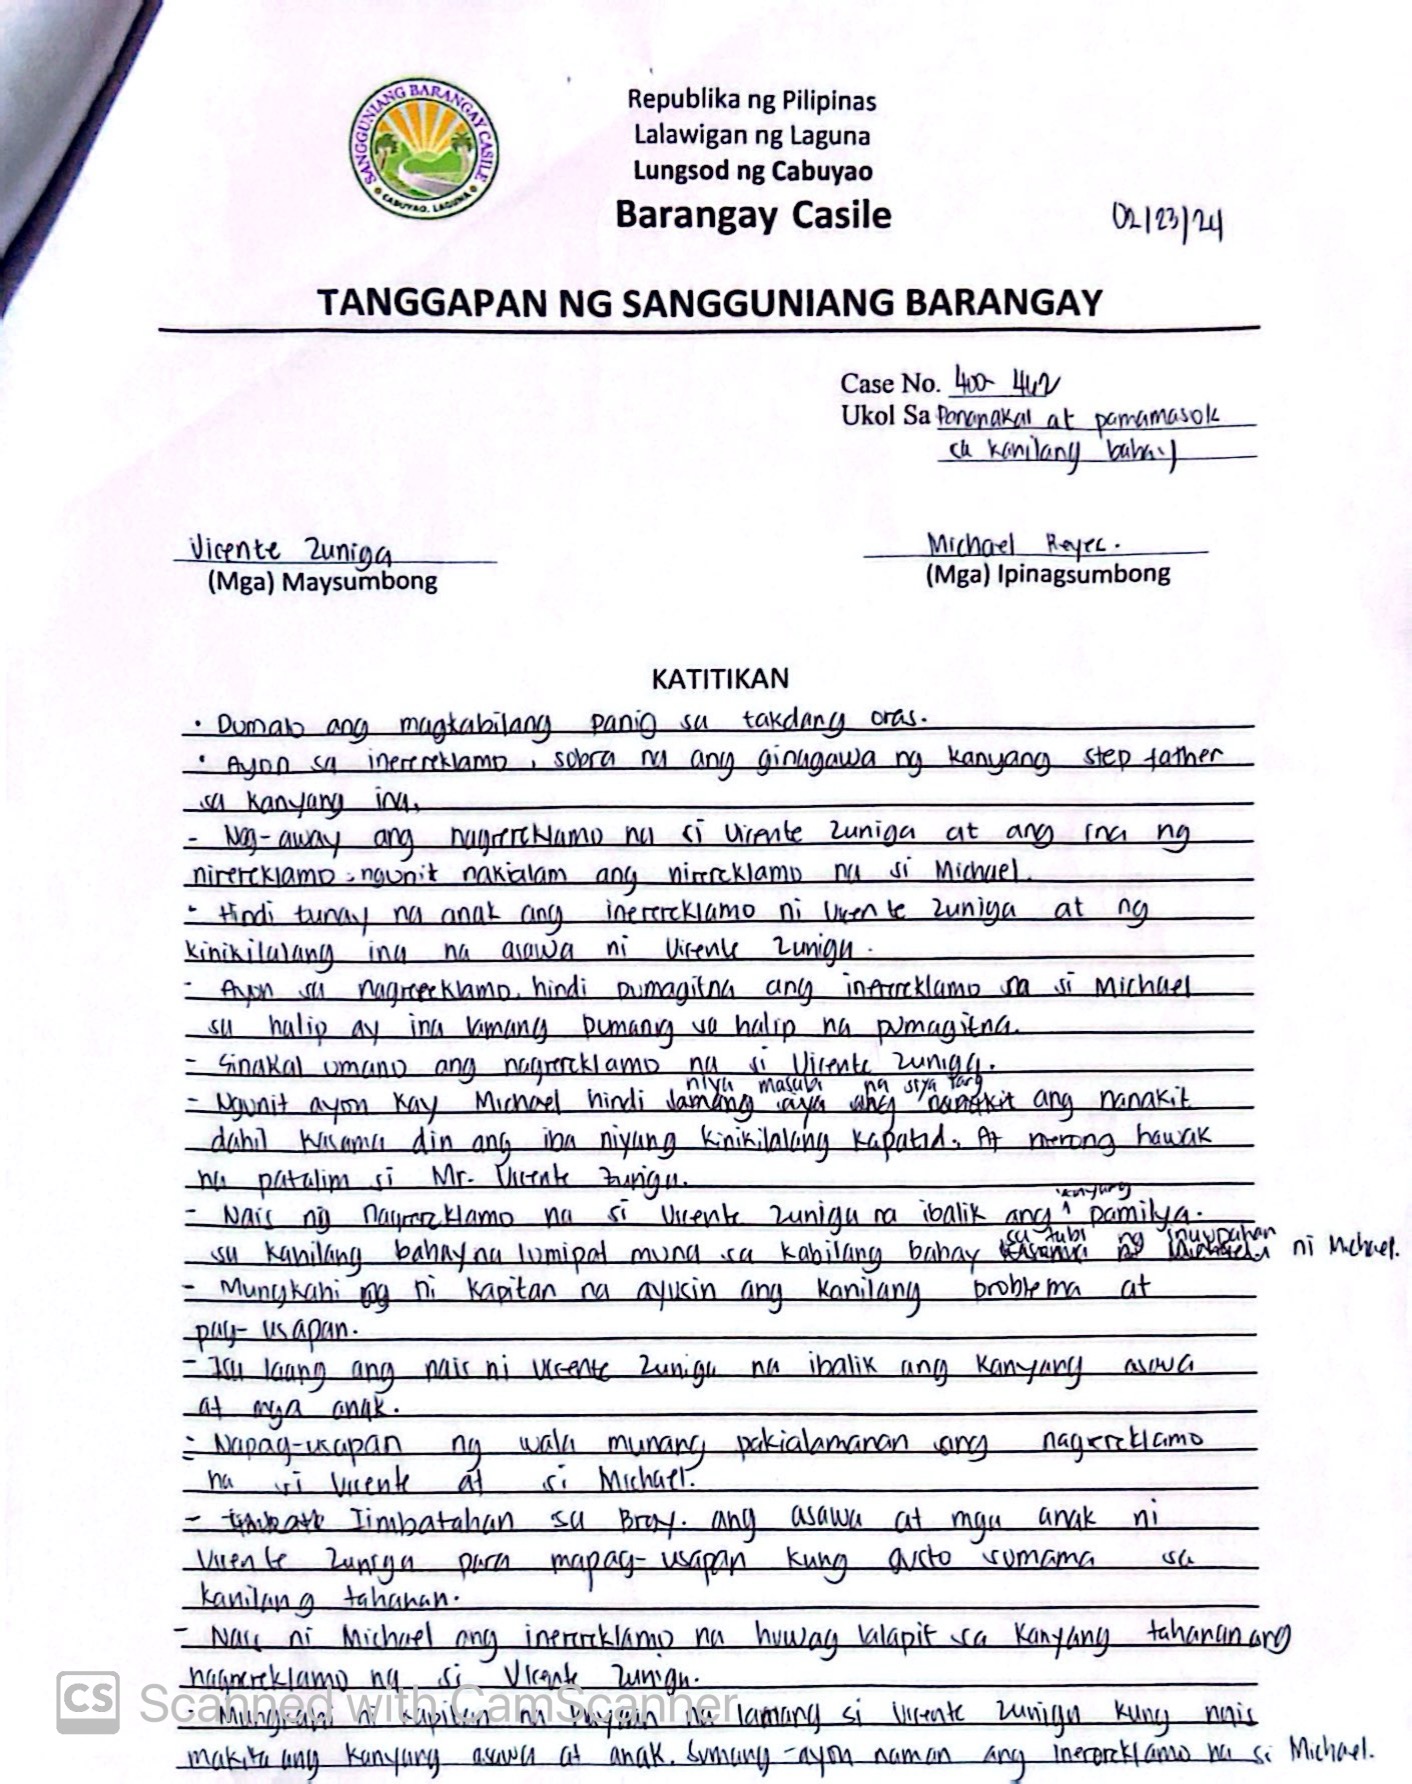 SANGGUNIANG BARANGAY CASILE
CABUYAO, LAGUNA
Republika ng Pilipinas
Lalawigan ng Laguna
Lungsod ng Cabuyao
Barangay Casile
02/23/24
TANGGAPAN NG SANGGUNIANG BARANGAY
Case No. 400-442
Ukol Sa Pananakal at pamamasok
sa kanilang bahay
Vicente Zuniga
(Mga) Maysumbong
Michael Reyes.
(Mga) Ipinagsumbong
KATITIKAN
• Dumalo ang magkabilang panig sa takdang oras.
• Ayon sa inerereklamo, sobra na ang ginagawa ng kanyang step father
sa kanyang ina.
- Ng-away ang nagrereklamo na si Vicente Zuniga at ang ina ng
nirereklamo ngunit nakialam ang nirereklamo na si Michael.
- Hindi tunay na anak ang inerereklamo ni Vicente Zuniga at ng
kinikilalang ina na asawa ni Vicente Zuniga.
- Ayon sa nagrereklamo, hindi pumagitna ang inerereklamo na si Michael
sa halip ay ina lamang pumanig sa halip na pumagitna.
- Sinakal umano ang nagrereklamo na si Vicente Zuniga.
niya masabi na siya lang
- Ngunit ayon kay Michael hindi ang nanakit
dahil kasama din ang iba niyang kinikilalang kapatid. At merong hawak
na patalim si Mr. Vicente Zuniga.
kanyang
- Nais ng nagrereklamo na si Vicente Zuniga na ibalik ang pamilya.
sa tabi ng inuupahan
sa kanilang bahay na lumipat muna sa kabilang bahay ni Michael.
- Mungkahi ni Kapitan na ayusin ang kanilang problema at
pag-usapan.
- Isa laang ang nais ni Vicente Zuniga na ibalik ang kanyang asawa
at mga anak.
- Napag-usapan ng wala munang pakialamanan ang nagrereklamo
na si Vicente at si Michael.
- Iimbatahan sa Brgy. ang asawa at mga anak ni
Vicente Zuniga para mapag-usapan kung gusto sumama sa
kanilang tahanan.
- Nais ni Michael ang inerereklamo na huwag lalapit sa kanyang tahanan ang
nagrereklamo na si Vicente Zuniga.
- Mungkahi ni Kapitan na lamang si Vicente Zuniga kung nais
makita ang kanyang asawa at anak. Sumang-ayon naman ang inerereklamo na si Michael.
CS Scanned with CamScanner